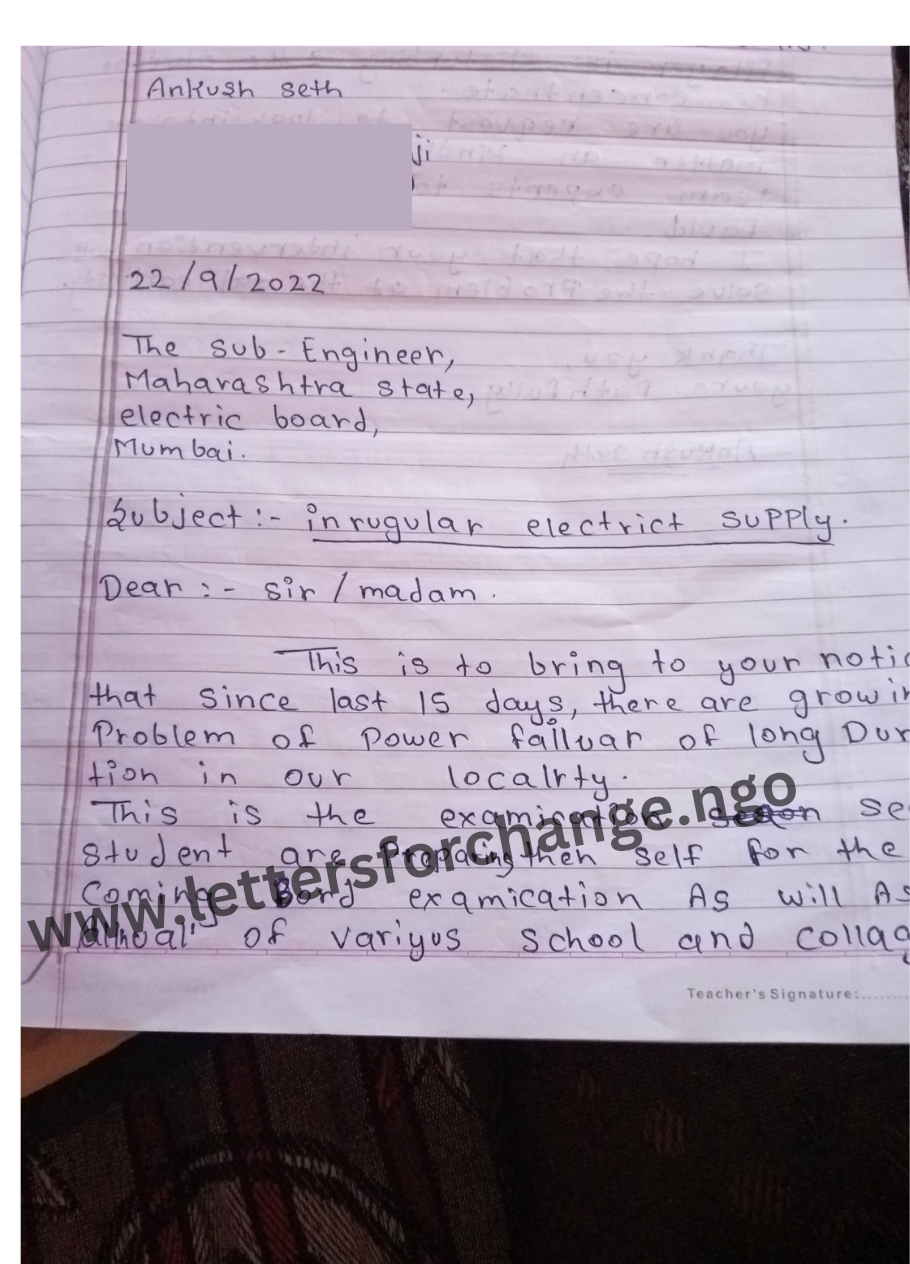 Ankush seth
ji
22/9/2022
The sub-Engineer,
Maharashtra state,
electric board,
Mumbai.
Subject :- inrugular electrict supply.
Dear :- sir / madam.
This is to bring to your notic
that since last 15 days, there are growin
Problem of Power falluar of long Dur
tion in our localrty.
This is the examication se
student are Preparing then self for the
Coming Bord examication As will As
of variyus school and collag
Teacher's Signature:........
www.lettersforchange.ngo